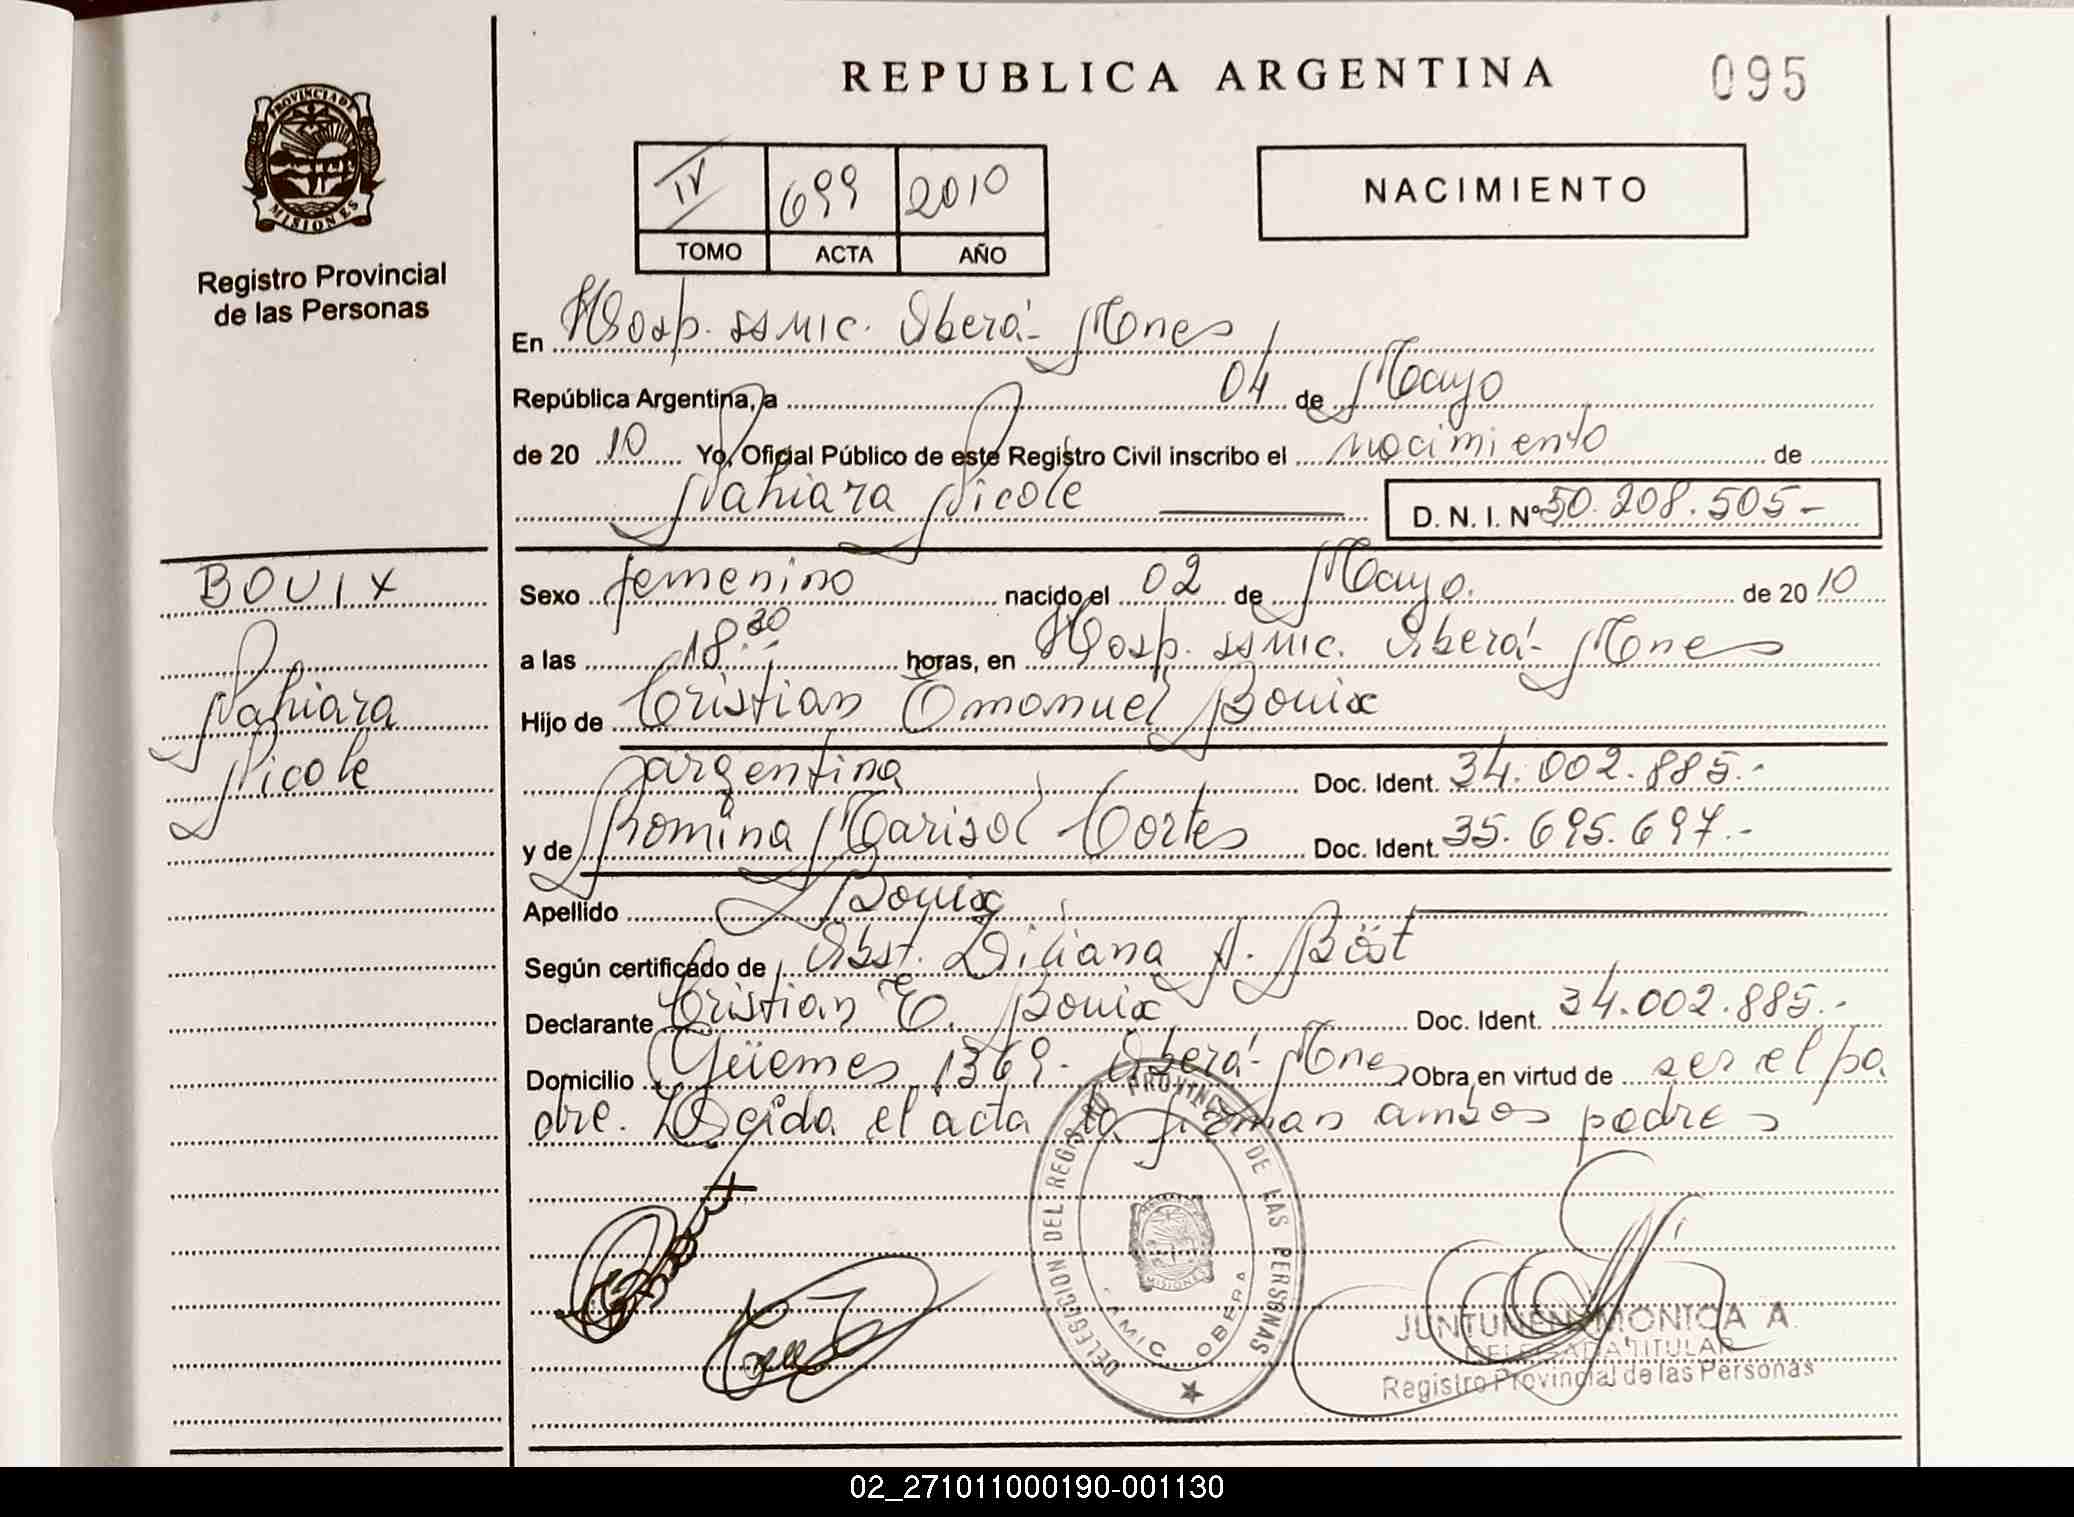 REPUBLICA ARGENTINA
095
PROVINCIA DE
MISIONES
Registro Provincial
de las Personas
IV 699 2010
TOMO ACTA AÑO
NACIMIENTO
En Hosp. SSMIC. Oberá- Mnes
República Argentina, a 04 de Mayo
de 20 10 Yo, Oficial Público de este Registro Civil inscribo el nacimiento de
Nahiara Nicole D. N. I. Nº 50.208.505-
BOUIX
Nahiara
Nicole
Sexo femenino nacido el 02 de Mayo. de 20 10
a las 18.30 horas, en Hosp. SSMIC. Oberá- Mnes
Hijo de Cristian Emanuel Bouix
argentina Doc. Ident. 34.002.885.-
y de Romina Marisol Cortes Doc. Ident. 35.695.697.-
Apellido Bouix
Según certificado de Obst. Liliana A. Bäst
Declarante Cristian E. Bouix Doc. Ident. 34.002.885.-
Domicilio Güemes 1369- Oberá- Mnes Obra en virtud de ser el pa
dre. Leída el acta la firman ambos padres
DELEGACION DEL REGISTRO PROVINCIAL DE LAS PERSONAS
SAMIC OBERA
MISIONES
JUNTUNEN MONICA A.
DELEGADA TITULAR
Registro Provincial de las Personas
02_271011000190-001130